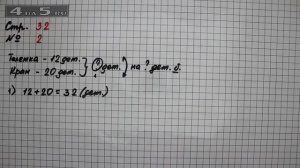 4fo5.ru
Стр. 32
№ 2
Тележка - 12 дет.
Кран - 20 дет.
? дет. на ? дет. б.
1) 12 + 20 = 32 (дет.)